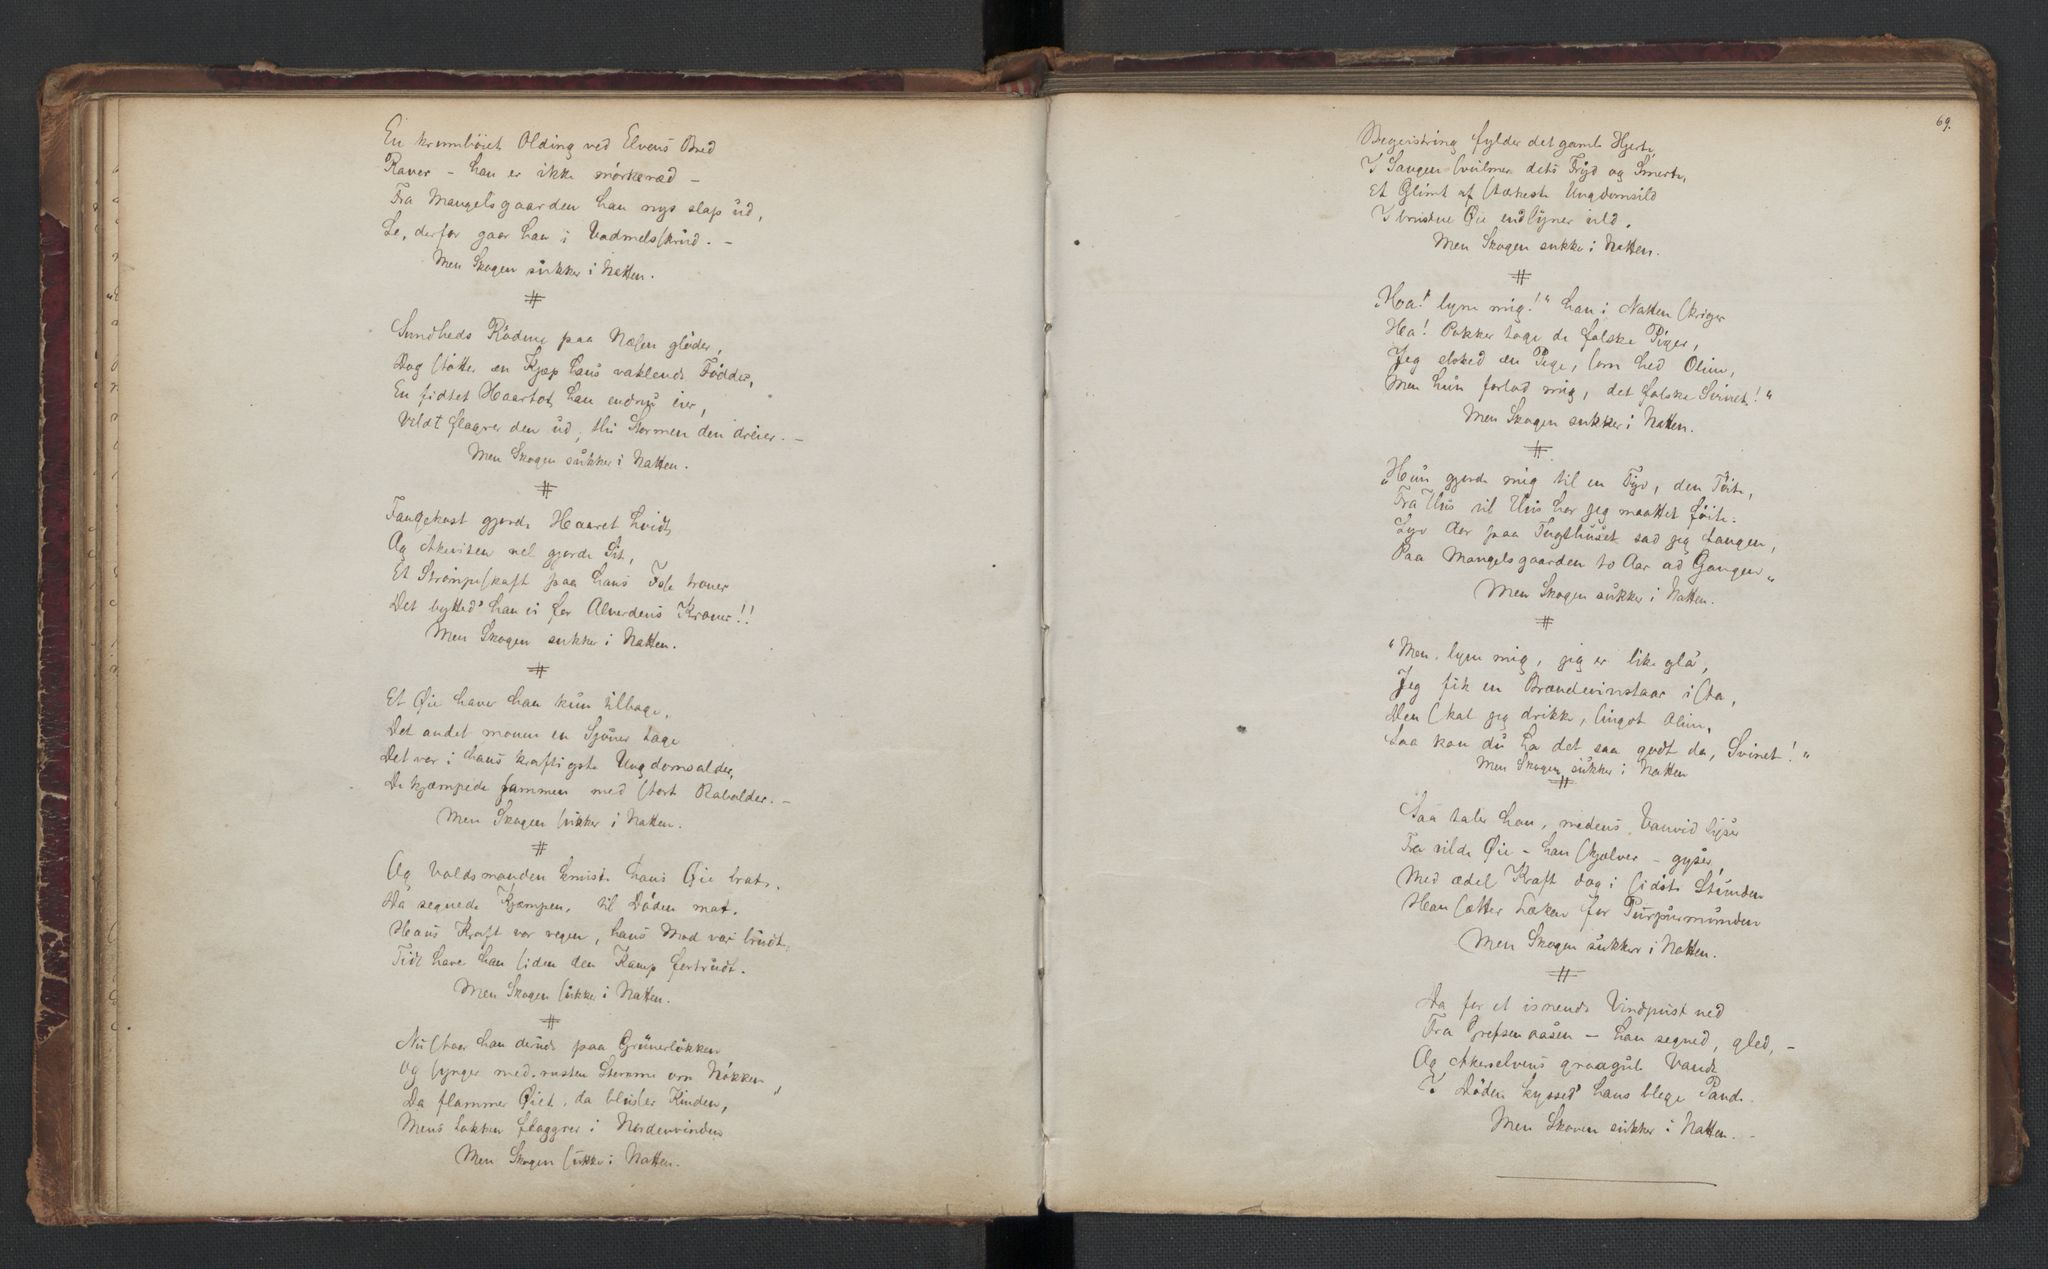 En krumbøiet Olding ved Elvens Bred
Raver – han er ikke mørkeræd –
Fra Mangelsgaarden han nys slap ud,
Se, derfor gaar han i Vadmelsskrud. –
Men Skogen sukker i Natten.
#
Sundheds Rødme paa Næsen gløder,
Dog støtter en Kjæp hans vaklende Fødder,
En fidtet Haartot han endnu eier,
Vildt flagrer den ud, thi Stormen den dreier. –
Men Skogen sukker i Natten.
#
Fangekost gjorde Haaret hvidt,
Og Akeviten vel gjorde Sit,
Et Strømpeskaft paa hans Isse troner
Det bytted' han ei for Alverdens Kroner!!
Men Skogen sukker i Natten.
#
Et Øie haver han kun tilbage,
Det andet monne en Sjouer tage
Det var i hans kraftigste Ungdomsalder,
De kjæmpede sammen med stort Rabalder. –
Men Skogen sukker i Natten.
#
Og Voldsmanden knuste hans Øie brat,
Da segnede Kjæmpen, til Døden mat.
Hans Kraft var vegen, hans Mod var brudt,
Tidt have han siden den Kamp fortrudt.
Men Skogen sukker i Natten.
#
Nu staar han derude paa Grünerløkken
Og synger med rusten Stemme om Nøkken,
Da flammer Øiet, da blusser Kinden,
Mens Lokken flaggrer i Nordenvinden
Men Skogen sukker i Natten.
69.
Begeistring fylder det gamle Hjerte,
I Sangen svulmer dets Fryd og Smerte,
Et Glimt af stækest Ungdomsild
I brustne Øie endlyner vild.
Men Skogen sukker i Natten.
#
"Hoa! lyne mig!" han i Natten skriger
Ha! Pokker tage de falske Piger,
Jeg elsked en Pige, som hed Oline,
Men hun forlod mig, det falske Svinet!"
Men Skogen sukker i Natten.
#
"Hun gjorde mig til en Tyv, den Tøite,
Fra Hus til Hus har jeg maattet føite.
Syv Aar paa Tugthuset sad jeg fangen,
Paa Mangelsgaarden to Aar ad Gangen"
Men Skogen sukker i Natten.
#
"Men, lyne mig, jeg er like gla',
Jeg fik en Brændevinstaar ista,
Den skal jeg drikke, singot Oline,
Saa kan du ha det saa godt da, Svinet!"
Men Skogen sukker i Natten
#
Saa taler han, medens Vanvid lyser
Fra vilde Øie – han skjælver – gyser,
Med ædel Kraft dog i sidste Stunden
Han sætter Lærken for Purpurmunden
Men Skogen sukker i Natten.
#
Da for et isnende Vindpust ned
Fra Grefsenaasen – han segned, gled, –
Og Akerselvens graagule Vande
I Døden kyssed' hans blege Pande.
Men Skoven sukker i Natten. –